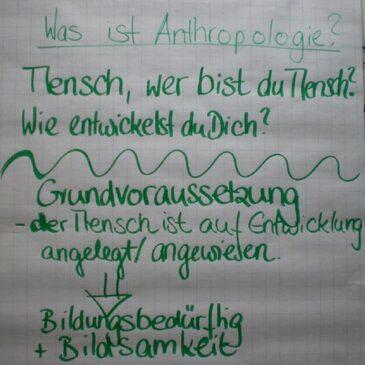 Was ist Anthropologie?
Mensch, wer bist du Mensch?
Wie entwickelst du Dich?
Grundvoraussetzung
- der Mensch ist auf Entwicklung
angelegt/ angewiesen.
Bildungsbedürftig
+ Bildsamkeit